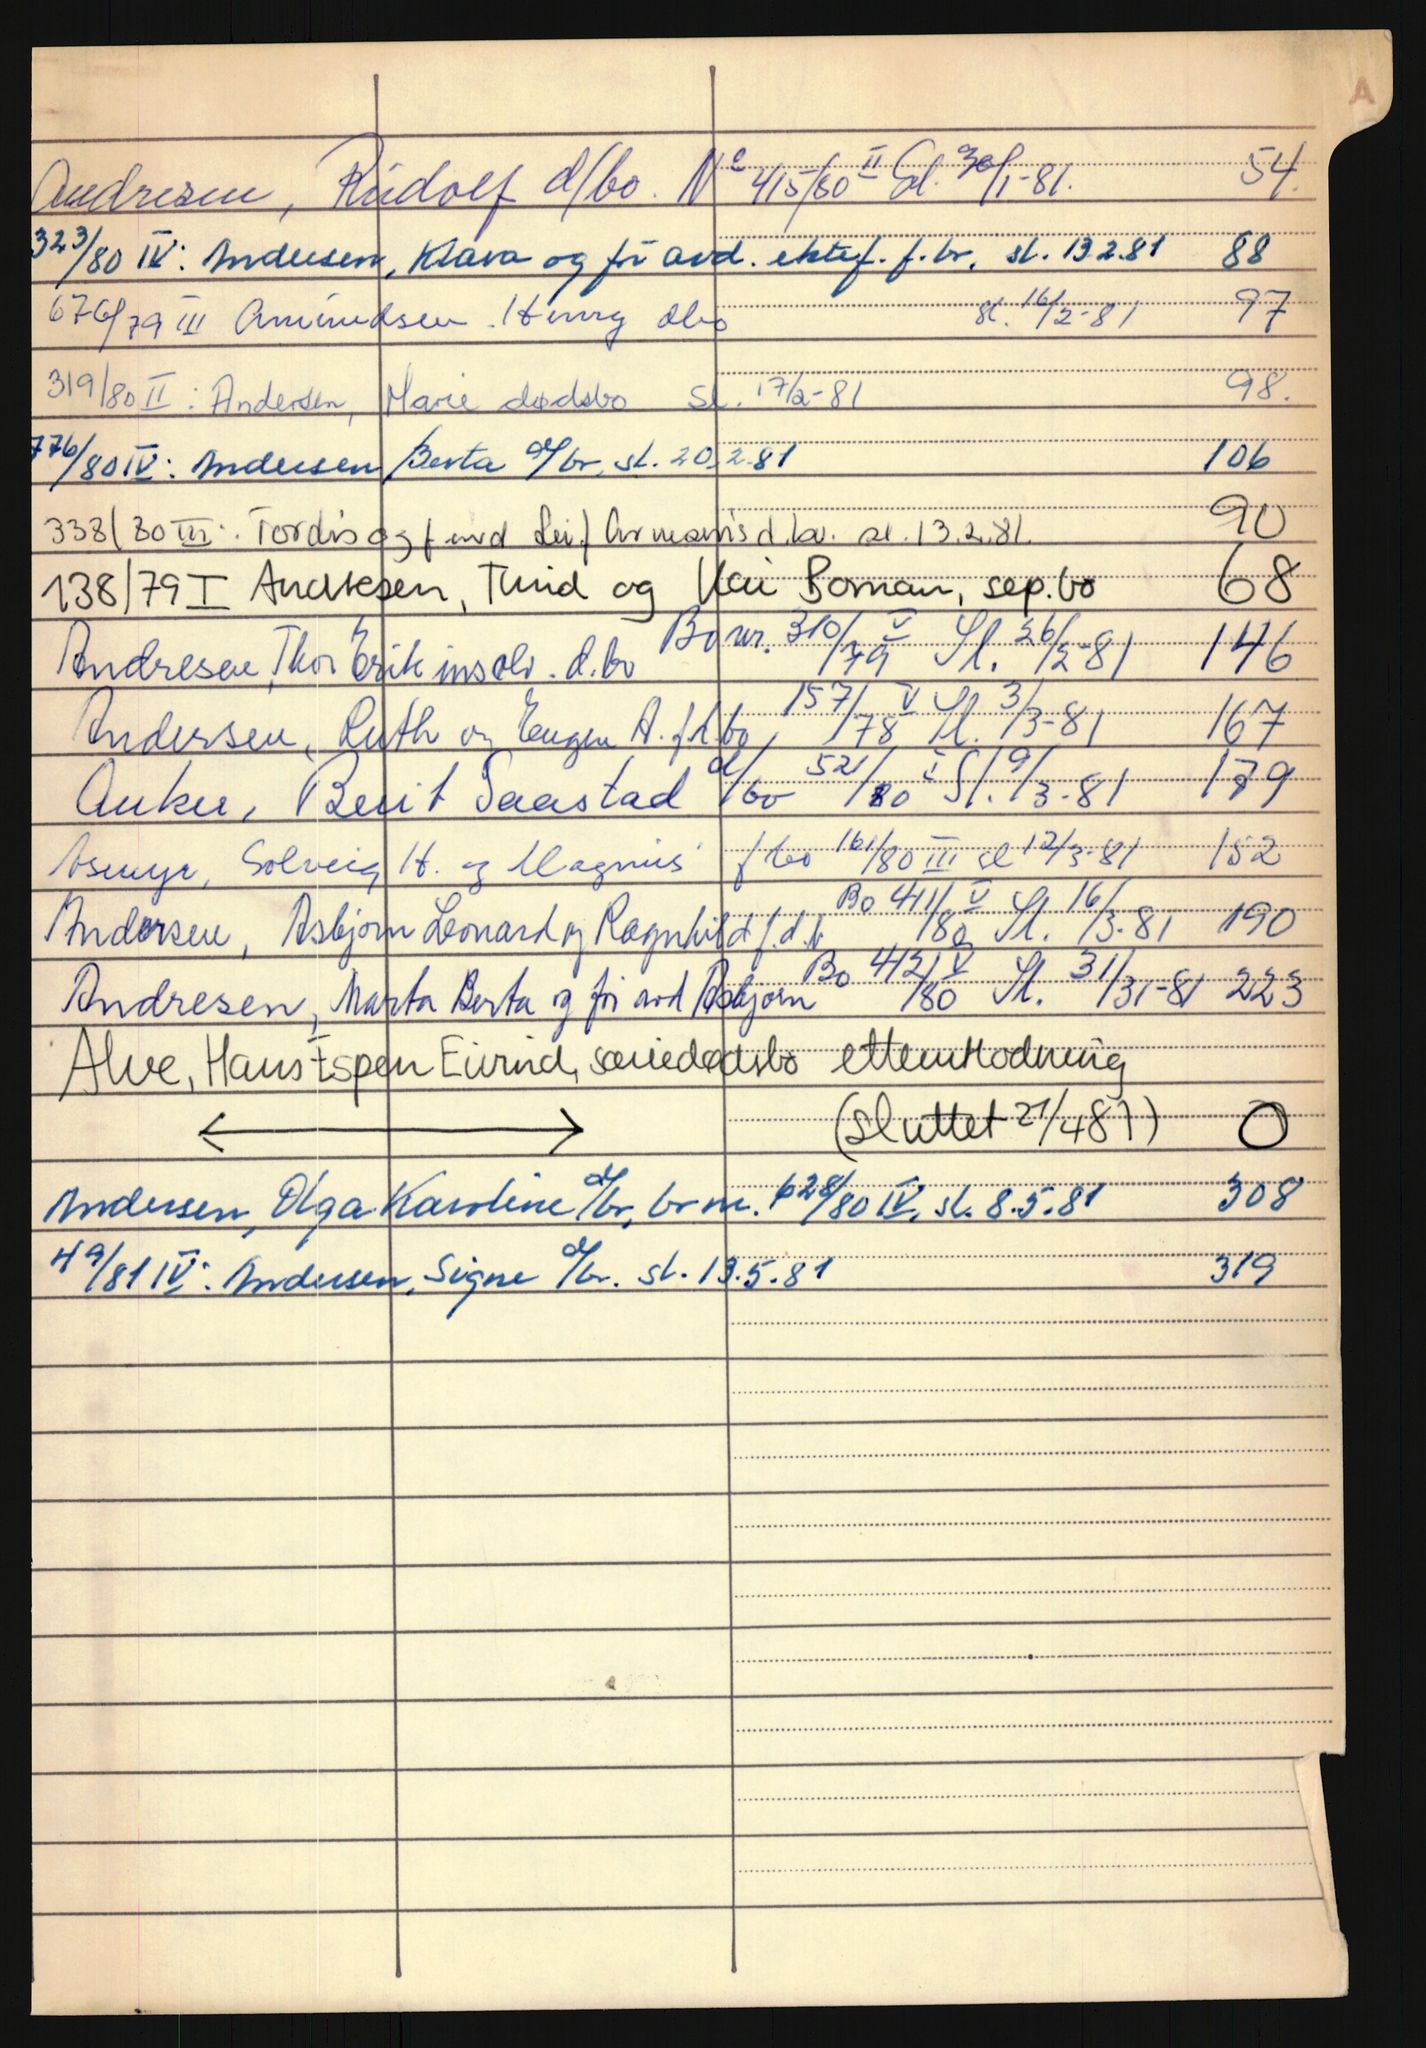 A
Andresen, Rudolf d/bo. No 415/80 II Sl. 30/1-81. 54.
323/80 IV: Andersen, Klara og før avd. ektef. f.bo, sl. 13.2.81 88
676/79 III Amundsen. Henry dbo sl. 16/2-81 97
319/80 II: Andersen, Marie dødsbo Sl. 17/2-81 98.
776/80 IV: Andersen, Berta d/bo, sl. 20.2.81 106
338/80 III: Tordis og f. avd Leif d.bo. sl. 13.2.81. 90
138/79 I Andresen, Turid og Kai Boman, sep.bo 68
Andresen, Thor Erik insolv. d.bo Bo nr. 310/79 V Sl. 26/2-81 146
Andersen, Ruth og Eugen A. f.d.bo 157/78 V Sl. 3/3-81 167
Anker, Berit Saastad d/bo 52/80 I Sl. 9/3-81 179
Solveig H. og Magnus f bo 161/80 III sl 12/3-81 152
Andersen, Asbjørn Leonard og Ragnhild f.d.b Bo 411/80 V Sl. 16/3-81 190
Andresen, Marta Berta og før avd Asbjørn Bo 412/80 V Sl. 31/31-81 223
Alve, Hans Espen Eivind, særiedødsbo etterutlodning
(sluttet 21/4 81) 0
Andersen, Olga Karoline d/bo, bo nr. 628/80 IV, sl. 8.5.81 308
49/81 IV: Andersen, Signe d/bo. sl. 13.5.81 319